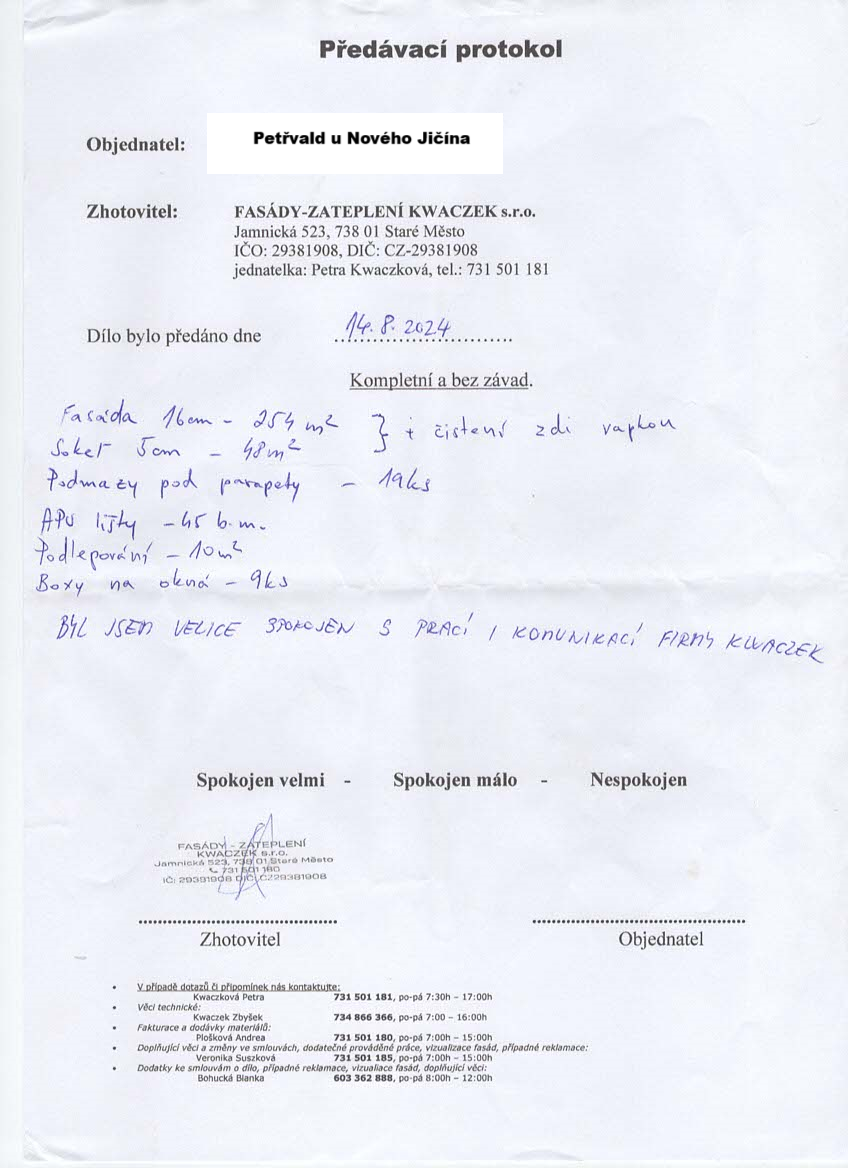 Předávací protokol
Objednatel: Petřvald u Nového Jičína
Zhotovitel: FASÁDY-ZATEPLENÍ KWACZEK s.r.o.
Jamnická 523, 738 01 Staré Město
IČO: 29381908, DIČ: CZ-29381908
jednatelka: Petra Kwaczková, tel.: 731 501 181
Dílo bylo předáno dne 14. 8. 2024
Kompletní a bez závad.
Fasáda 16cm - 254 m² } + čistení zdi vapkou
Sokel 5cm - 48m²
Podmazy pod parapety - 19ks
APU lišty - 45 b.m.
Podlepování - 10m²
Boxy na okná - 9ks
BYL JSEM VELICE SPOKOJEN S PRACÍ I KOMUNIKACÍ FIRMY KWACZEK
Spokojen velmi - Spokojen málo - Nespokojen
FASÁDY - ZATEPLENÍ
KWACZEK s.r.o.
Jamnická 523, 738 01 Staré Město
731 501 180
IČ: 29381908 DIČ: CZ29381908
Zhotovitel Objednatel
• V případě dotazů či připomínek nás kontaktujte:
Kwaczková Petra 731 501 181, po-pá 7:30h – 17:00h
• Věci technické:
Kwaczek Zbyšek 734 866 366, po-pá 7:00 – 16:00h
• Fakturace a dodávky materiálů:
Plošková Andrea 731 501 180, po-pá 7:00h – 15:00h
• Doplňující věci a změny ve smlouvách, dodatečné prováděné práce, vizualizace fasád, případné reklamace:
Veronika Suszková 731 501 185, po-pá 7:00h – 15:00h
• Dodatky ke smlouvám o dílo, případné reklamace, vizualiace fasád, doplňující věci:
Bohucká Blanka 603 362 888, po-pá 8:00h – 12:00h